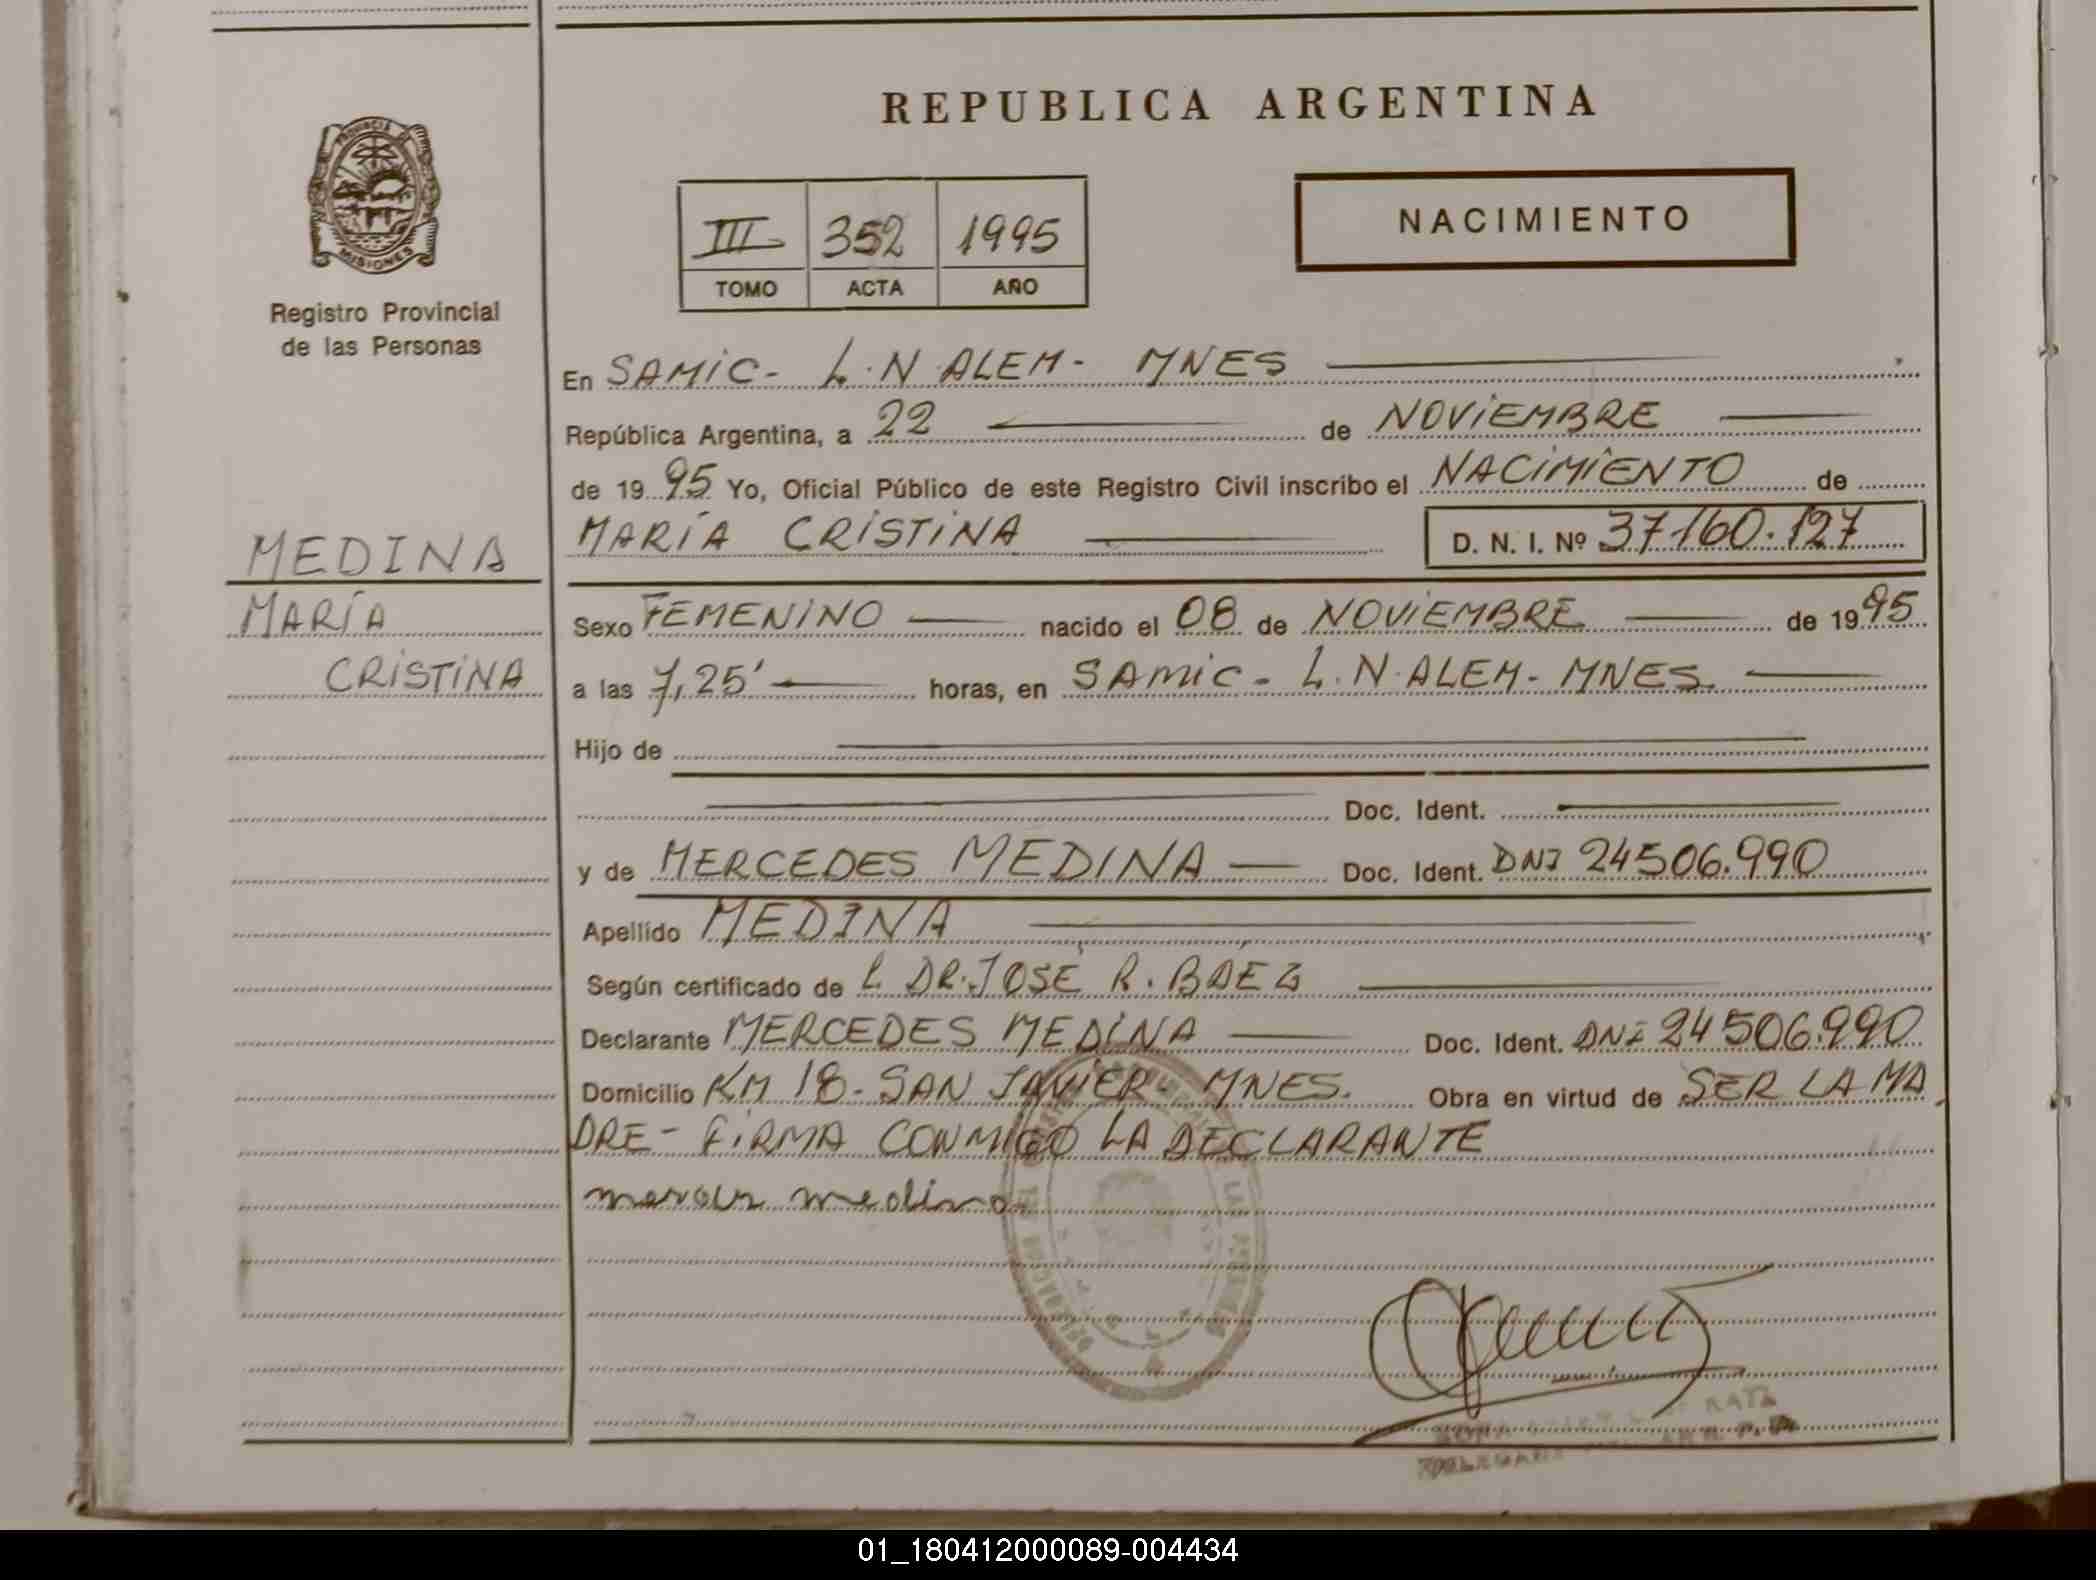 PROVINCIA DE
MISIONES
Registro Provincial
de las Personas
MEDINA
MARÍA
CRISTINA
REPUBLICA ARGENTINA
III 352 1995
TOMO ACTA AÑO
NACIMIENTO
En SAMIC- L.N ALEM- MNES
República Argentina, a 22 de NOVIEMBRE
de 1995 Yo, Oficial Público de este Registro Civil inscribo el NACIMIENTO de
MARÍA CRISTINA D. N. I. Nº 37160.127
Sexo FEMENINO nacido el 08 de NOVIEMBRE de 1995
a las 7,25' horas, en SAMIC- L.N.ALEM- MNES.
Hijo de
Doc. Ident.
y de MERCEDES MEDINA Doc. Ident. DNI 24506.990
Apellido MEDINA
Según certificado de L. DR. JOSÉ R. BAEZ
Declarante MERCEDES MEDINA Doc. Ident. DNI 24506.990
Domicilio KM 18- SAN JAVIER- MNES. Obra en virtud de SER LA MA
DRE- FIRMA CONMIGO LA DECLARANTE
medina
01_180412000089-004434